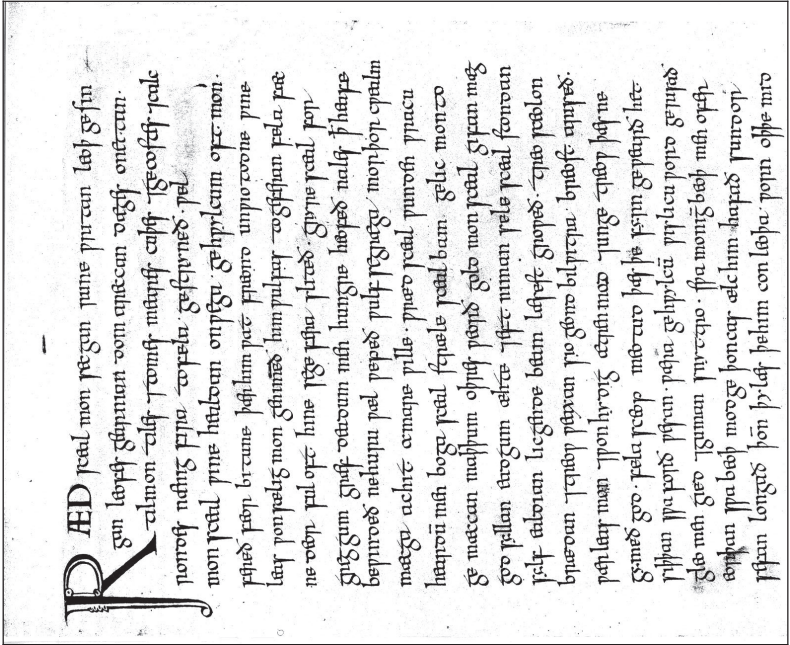 RÆD sceal mon secgan rune writan leoþ gesin
gan leofes gearnian dom areccan dæges onettan.
til mon tiles ⁊ tomes meares cuþes ⁊ gecostes ⁊ calc
rondes nænig fira to fela gestryneð. wel
mon sceal wine healdan on wega gehwylcum oft mon
fereð feor bi tune þær him wat freond unwiotodne wine
leas won sælig mon genimeð him wulfas to geferan fela fæc
ne deor ful oft hine se gefera sliteð. gryre sceal for
greggum græf deadum men hungre heofeð nales þ heafe
bewindeð ne huru wæl wepeð wulf se græga morþor cwealm
mæcga ac hit a mare wille. wræd sceal wunden wracu
heardū men boga sceal stræle sceal bam gelic mon to
ge mæccan maþþum oþres weorð gold mon sceal gifan mæg
god syllan eadgum æhte ⁊ eft niman sele sceal stondan
sylf ealdian licgende beam læsest groweð. treo sceolon
brædan ⁊ treow weaxan sio geond bilwitra breost ariseð.
wær leas mon ⁊ wonhydig ætren mod ⁊ unge treow þæs ne
gymeð god. fela sceop meotud þæs þe fyrn gewearð het
siþþan swa forð wesan. wæra gehwylcū wislicu word gerisað
gleo men gied ⁊ guman snyttro. swa monig beoþ men ofer
eorþan swa beoþ modge þoncas ælc him hafað sundor
sefan longað þoñ þy læs þe him con leoþa worn oþþe mid